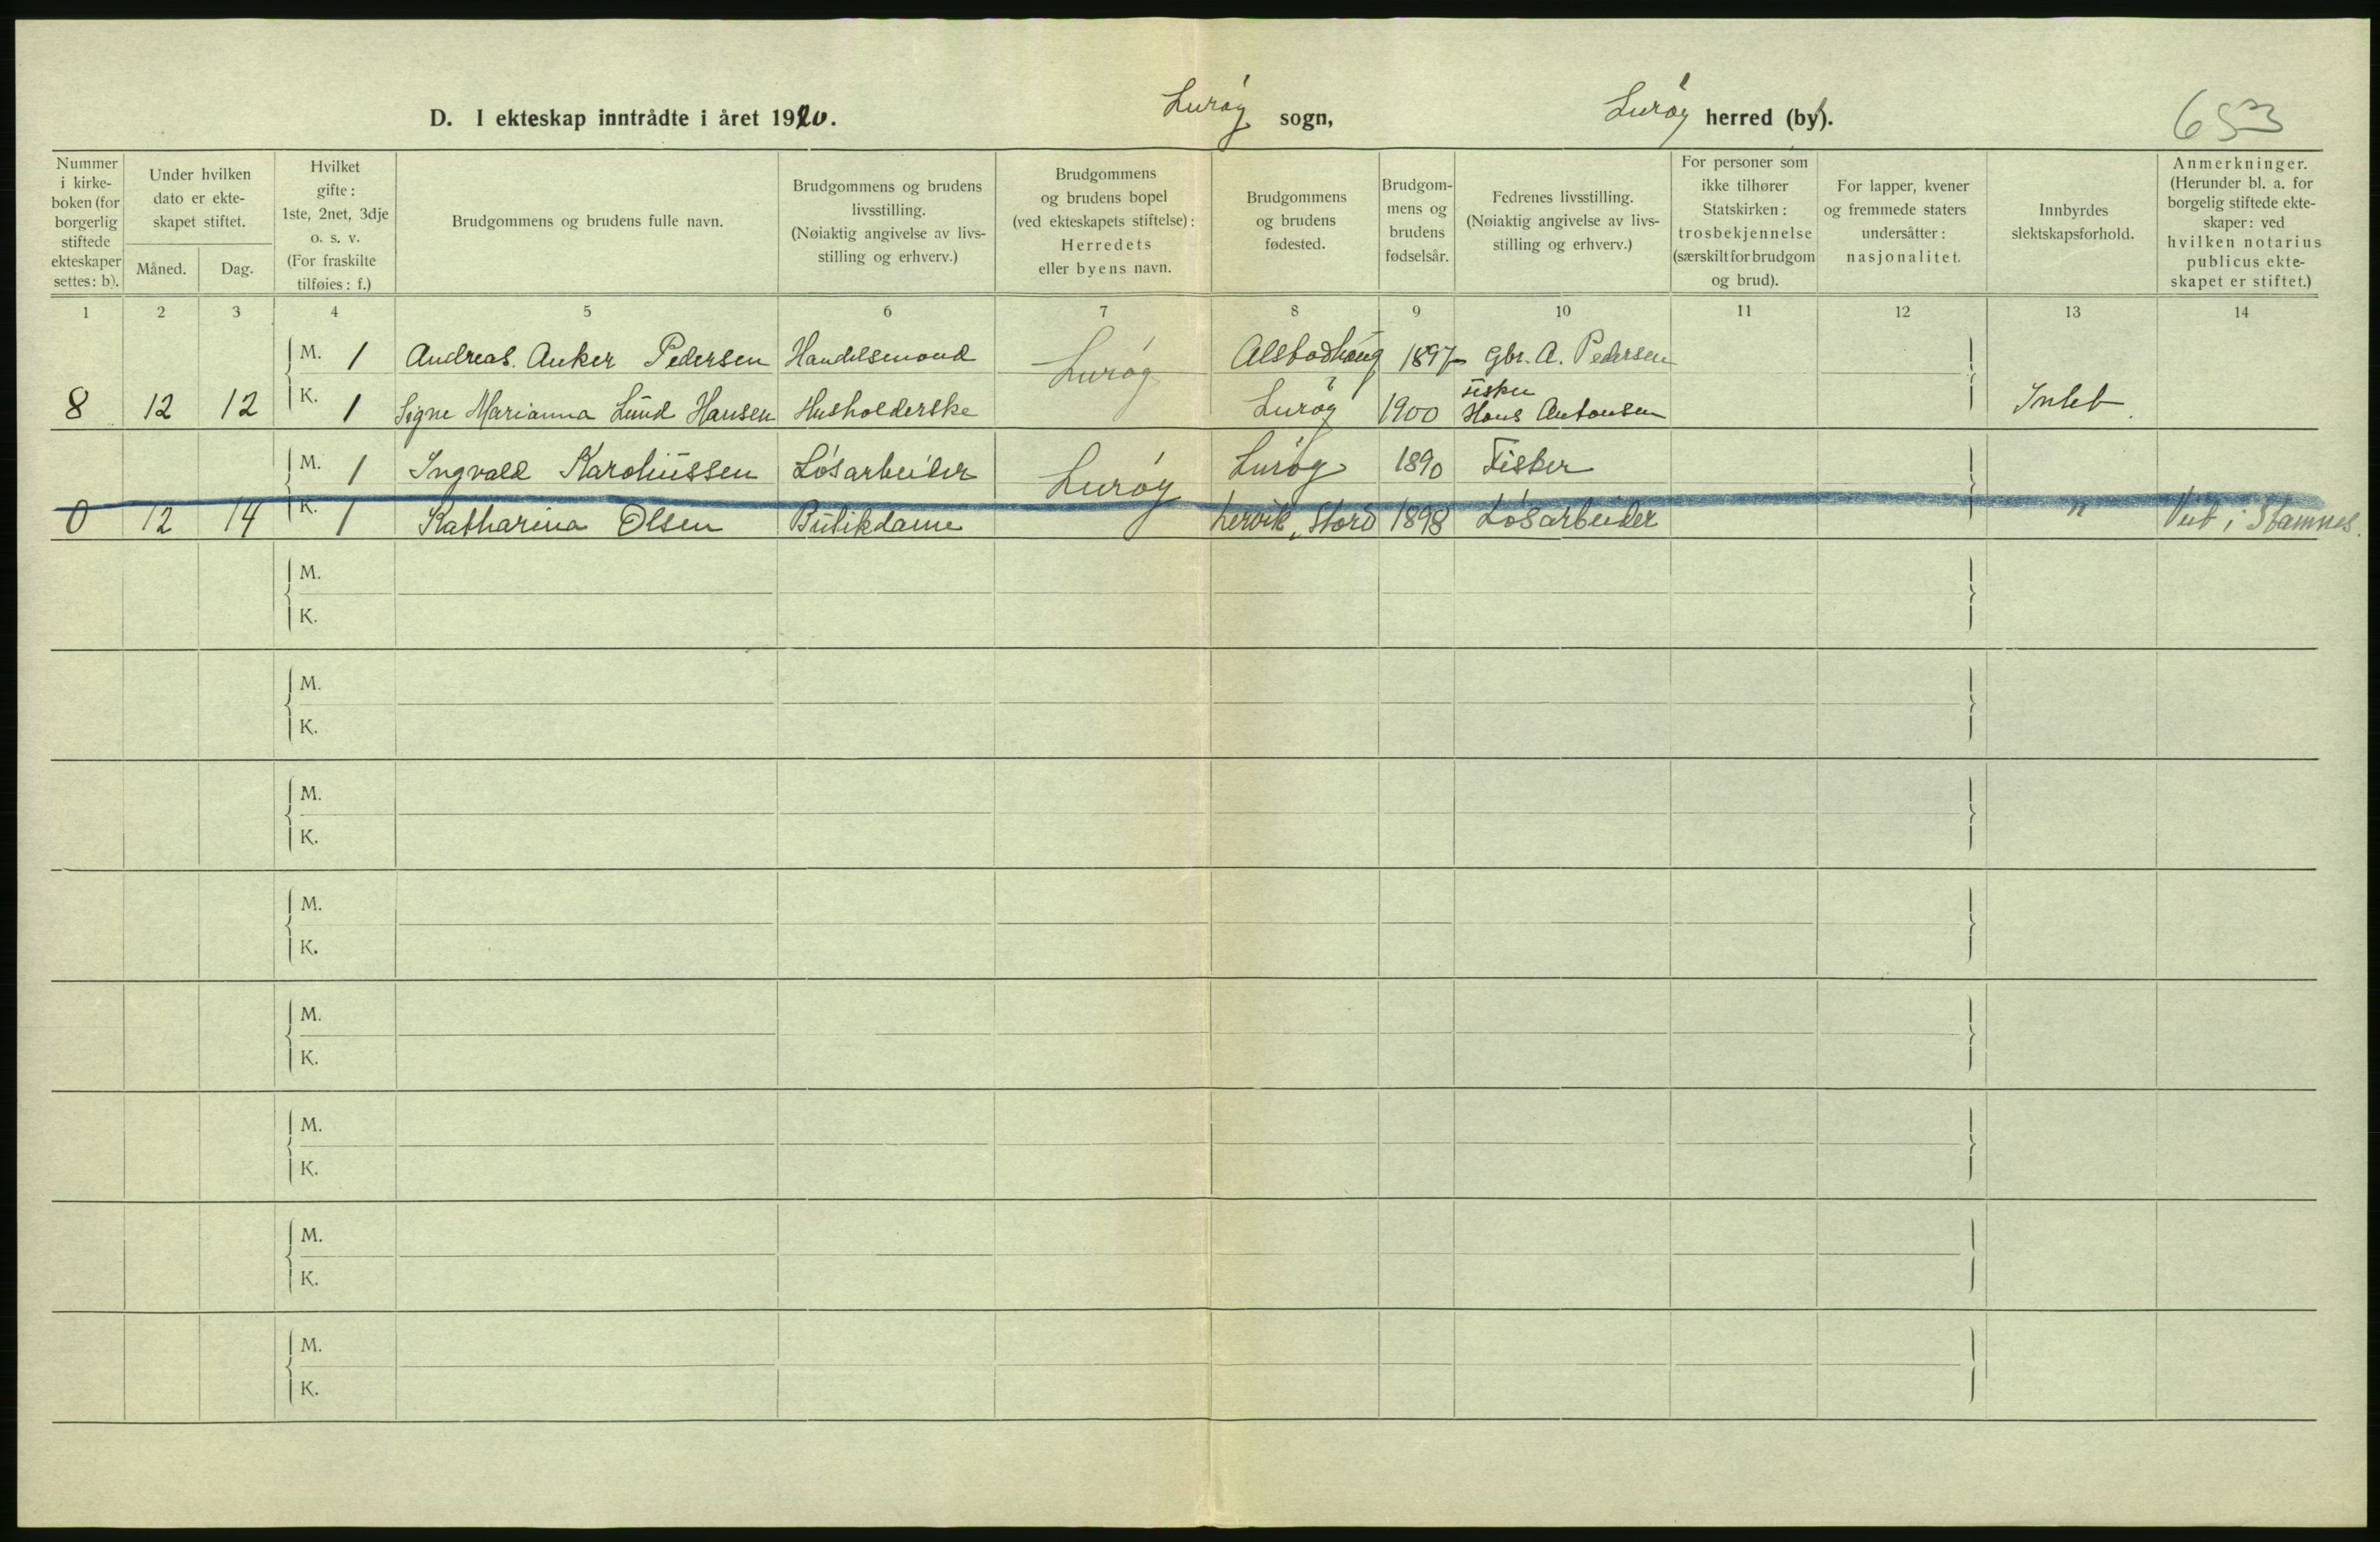 D. I ekteskap inntrådte i året 1920. Lurøy sogn, Lurøy herred (by). 653
Nummer i kirkeboken (for borgerlig stiftede ekteskaper settes: b).
Under hvilken dato er ekteskapet stiftet.
Måned. Dag.
Hvilket gifte: 1ste, 2net, 3dje o. s. v. (For fraskilte tilføies: f.)
Brudgommens og brudens fulle navn.
Brudgommens og brudens livsstilling. (Nøiaktig angivelse av livsstilling og erhverv.)
Brudgommens og brudens bopel (ved ekteskapets stiftelse): Herredets eller byens navn.
Brudgommens og brudens fødested.
Brudgommens og brudens fødselsår.
Fedrenes livsstilling. (Nøiaktig angivelse av livsstilling og erhverv.)
For personer som ikke tilhører Statskirken: trosbekjennelse (særskilt for brudgom og brud).
For lapper, kvener og fremmede staters undersåtter: nasjonalitet.
Innbyrdes slektskapsforhold.
Anmerkninger. (Herunder bl. a. for borgelig stiftede ekteskaper: ved hvilken notarius publicus ekteskapet er stiftet.)
1 2 3 4 5 6 7 8 9 10 11 12 13 14
M. 1 Andreas Anker Pedersen Handelsmand Lurøy Alstadhaug 1897 Gbr. A. Pedersen
8 12 12 K. 1 Signe Marianna Lund Hansen Husholderske Lurøy 1900 Fisker Hans Antonsen Intet
M. 1 Ingvald Karoliussen Løsarbeider Lurøy Lurøy 1890 Fisker
0 12 14 K. 1 Katharina Olsen Butikdame Lervik, Stord 1898 Løsarbeider " Viet i Stamnes.
M.
K.
M.
K.
M.
K.
M.
K.
M.
K.
M.
K.
M.
K.
M.
K.